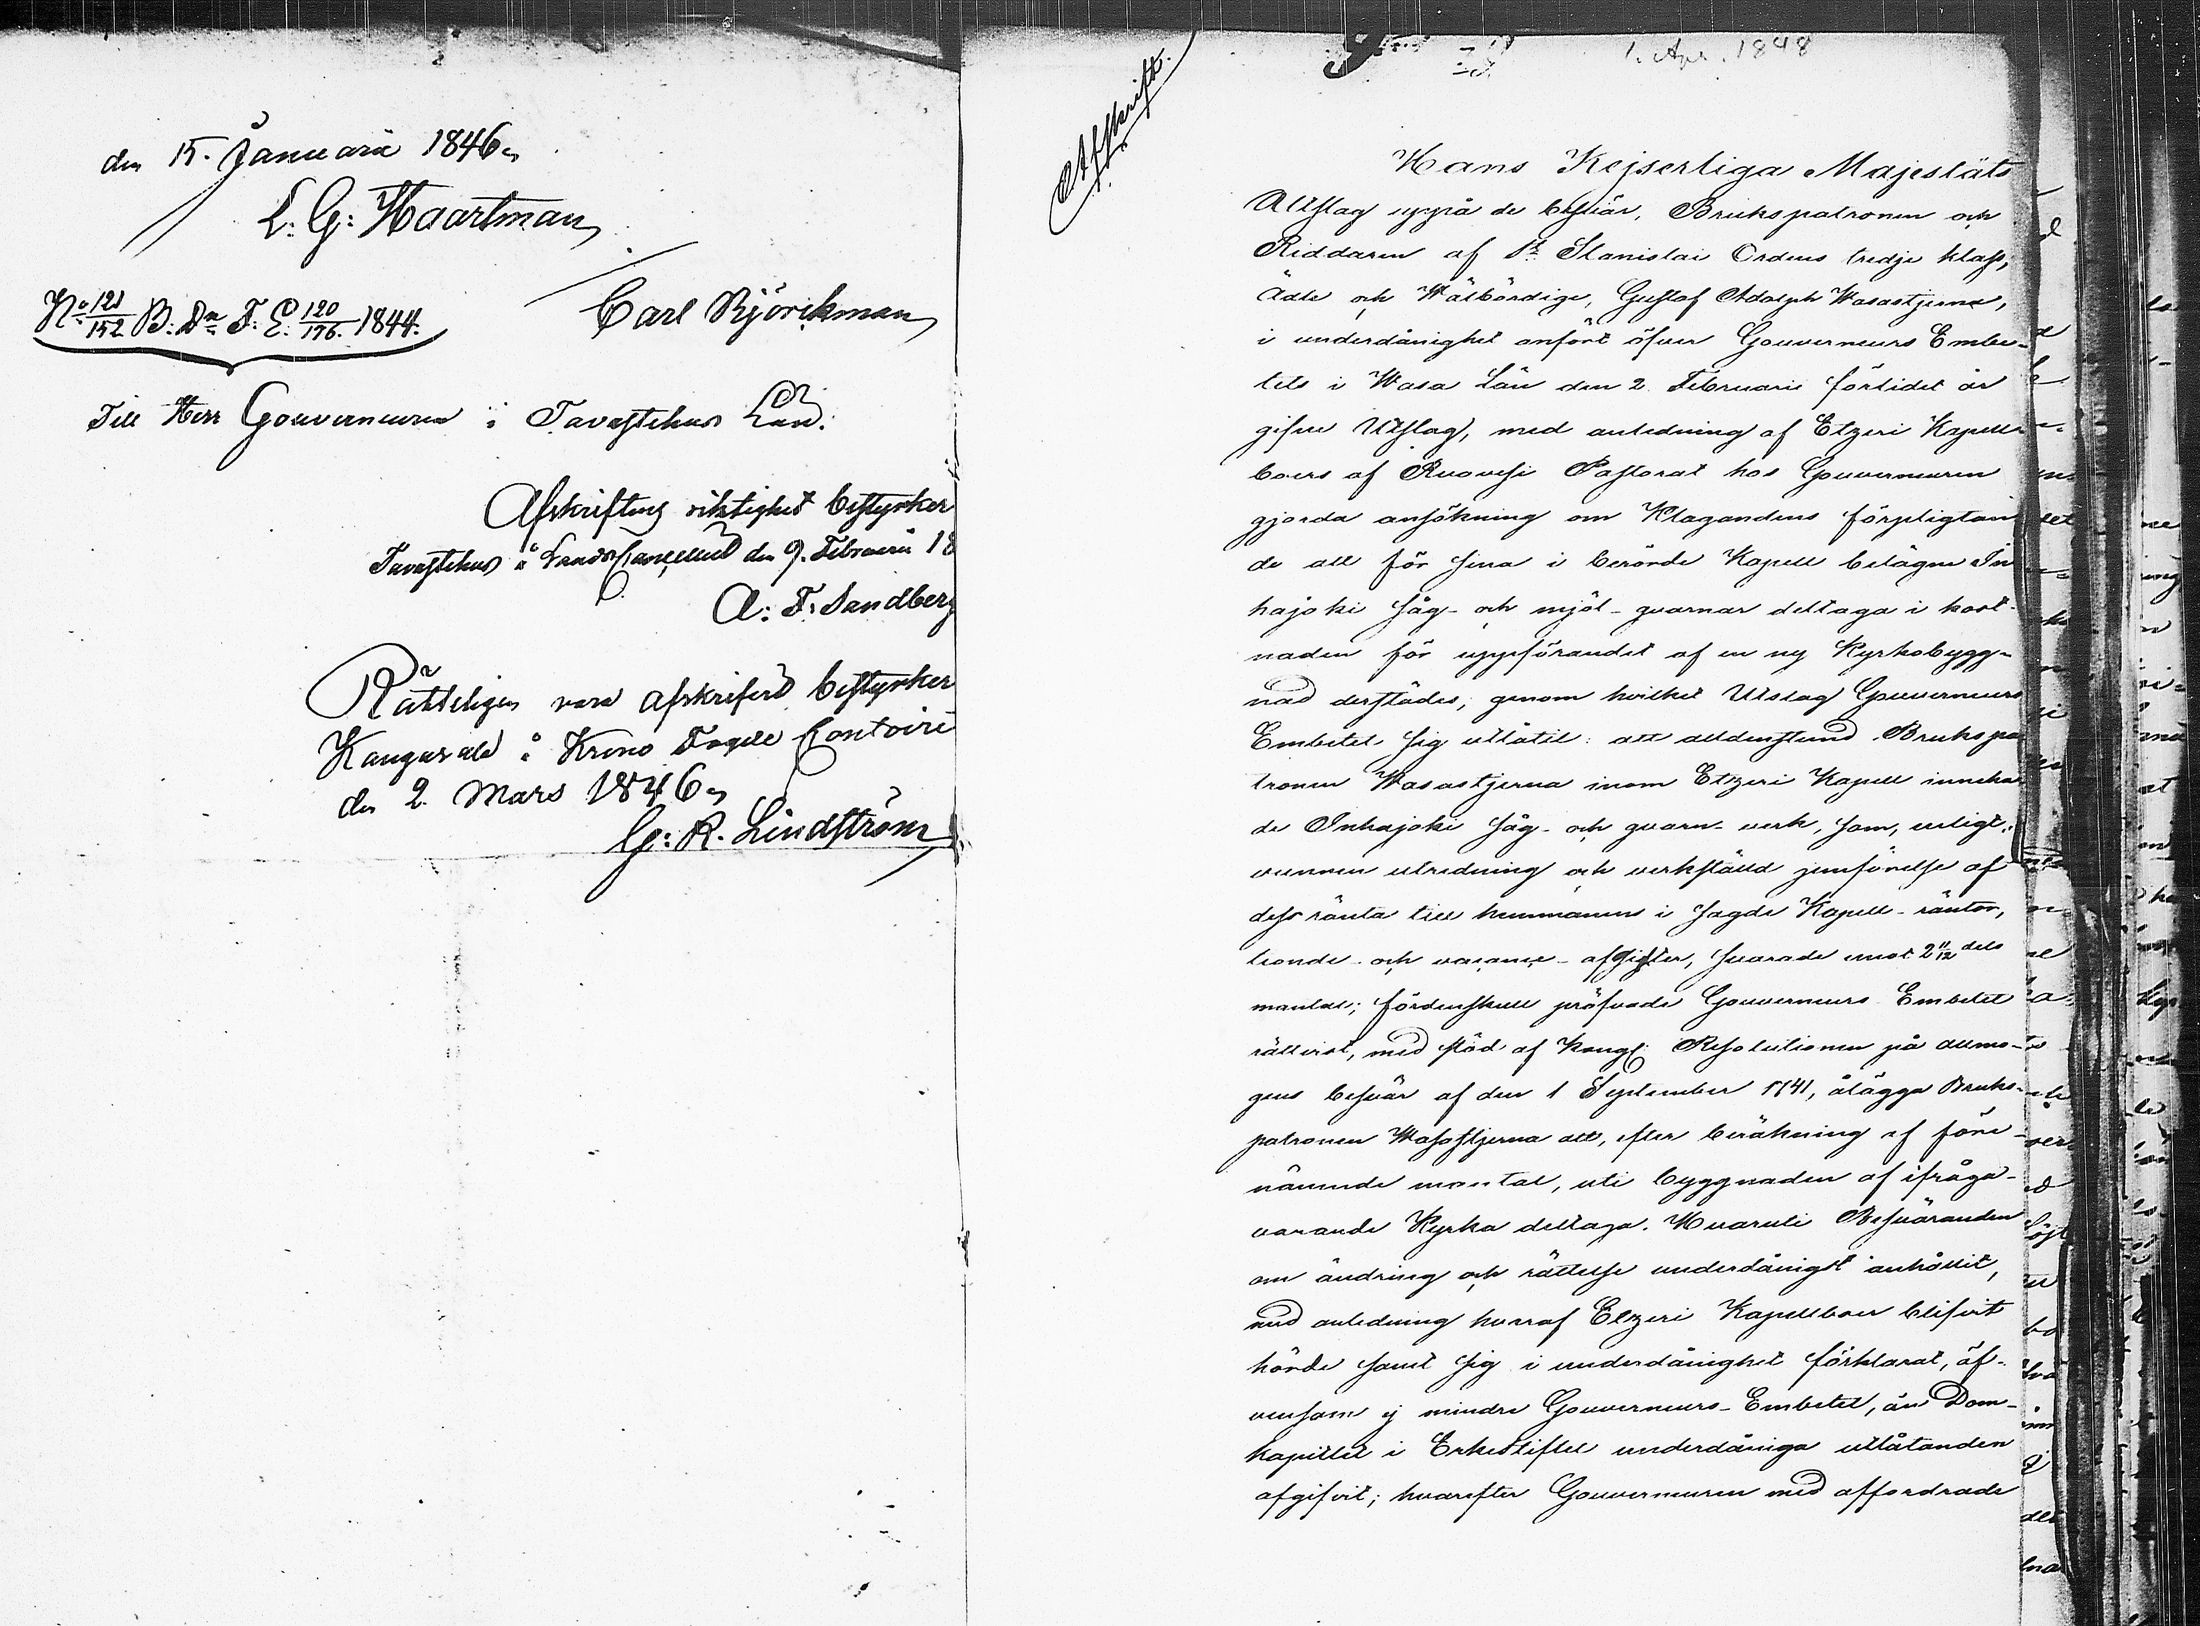 den 15. Januarii 1846.
L: G: Haartman
Carl Björckman
No 121/152 B. Dn F: E: 120/176. 1844.
Till Herr Gouverneuren i Tavastehus Län.
Afskriftens riktighet bestyrker
Tavastehus å Lands Cancelliet den 9. Februarii 18
A: F: Sandberg
Rätteligen vara afskrifvit bestyrker
Kangasala å Krono Fogde Contoiret
den 2. Mars 1846.
G: R. Lindström
1. Apr. 1848
Afskrift.
Hans Kejserliga Majestäts
Utslag uppå de besvär, Brukspatronen och
Riddaren af St. Stanislai Ordens tredje klass,
Ädle och Wälbördige, Gustaf Adolph Wasastjerna,
i underdånighet anfört öfver Gouverneurs Embe-
tets i Wasa Län den 2 Februarii förlidet år
gifne Utslag, med anledning af Etzeri Kapell-
boers af Ruovesi Pastorat hos Gouverneuren
gjorda ansökning om Klagandens förpligtan-
de att för sina i berörde Kapell belägne In
hajoki såg- och mjöl-qvarnar deltaga i kost-
naden för uppförandet af en ny Kyrkobygg-
nad derstädes, genom hvilket Utslag Gouverneurs
Embetet sig utlåtit: att alldenstund Brukspa
tronen Wasastjerna inom Etzeri Kapell inneha
de Inhajoki såg- och qvarn-verk, som, enligt
vunnen utredning och verkställd jemförelse af
dess ränta till hemmanens i sagde Kapell-räntor,
tionde- och vacance-afgifter, svarade emot 2 11/12 dels
mantal; fördenskull pröfvade Gouverneurs Embetet
rättvist, med stöd af Kongl. Resolutionen på allmo-
gens besvär af den 1 September 1741, ålägga Bruks-
patronen Wasastjerna att, efter beräkning af före-
nämnde mantal, uti byggnaden af ifråga-
varande Kyrka deltaga. Hvaruti Besväranden
om ändring och rättelse underdånigst anhållit,
med anledning hvaraf Etzeri Kapellboer blifvit
hörde samt sig i underdånighet förklarat, äf-
vensom ej mindre Gouverneurs-Embetet, än Dom-
kapitlet i Erkestiftet underdåniga utlåtanden
afgifvit; hvarefter Gouverneuren med affordrade